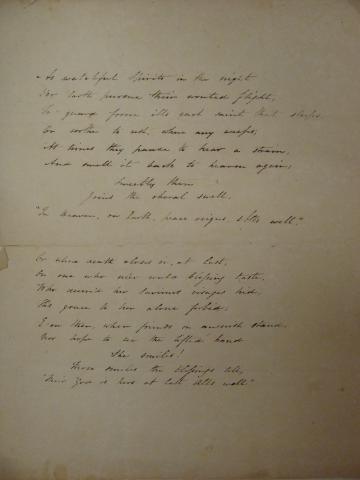 As watchful Spirits in the night
O'er Earth pursue their wonted flight,
To guard from ills each saint that sleeps,
Or soothe to rest, where any weeps;
At times they pause to hear a strain,
And swell it back to heaven again;
Sweetly them
Joins the choral swell.
"In Heaven, on Earth, peace reigns, & all's well."
Or when death closes in, at last,
On one who
Who deem'd her Saviour's visage hid,
His grace to her alone forbid;
E'en then, when friends in anguish stand
Nor hope to see the lifted hand
She smiles!
Those smiles the blessings tell,
God is here at last all's well"